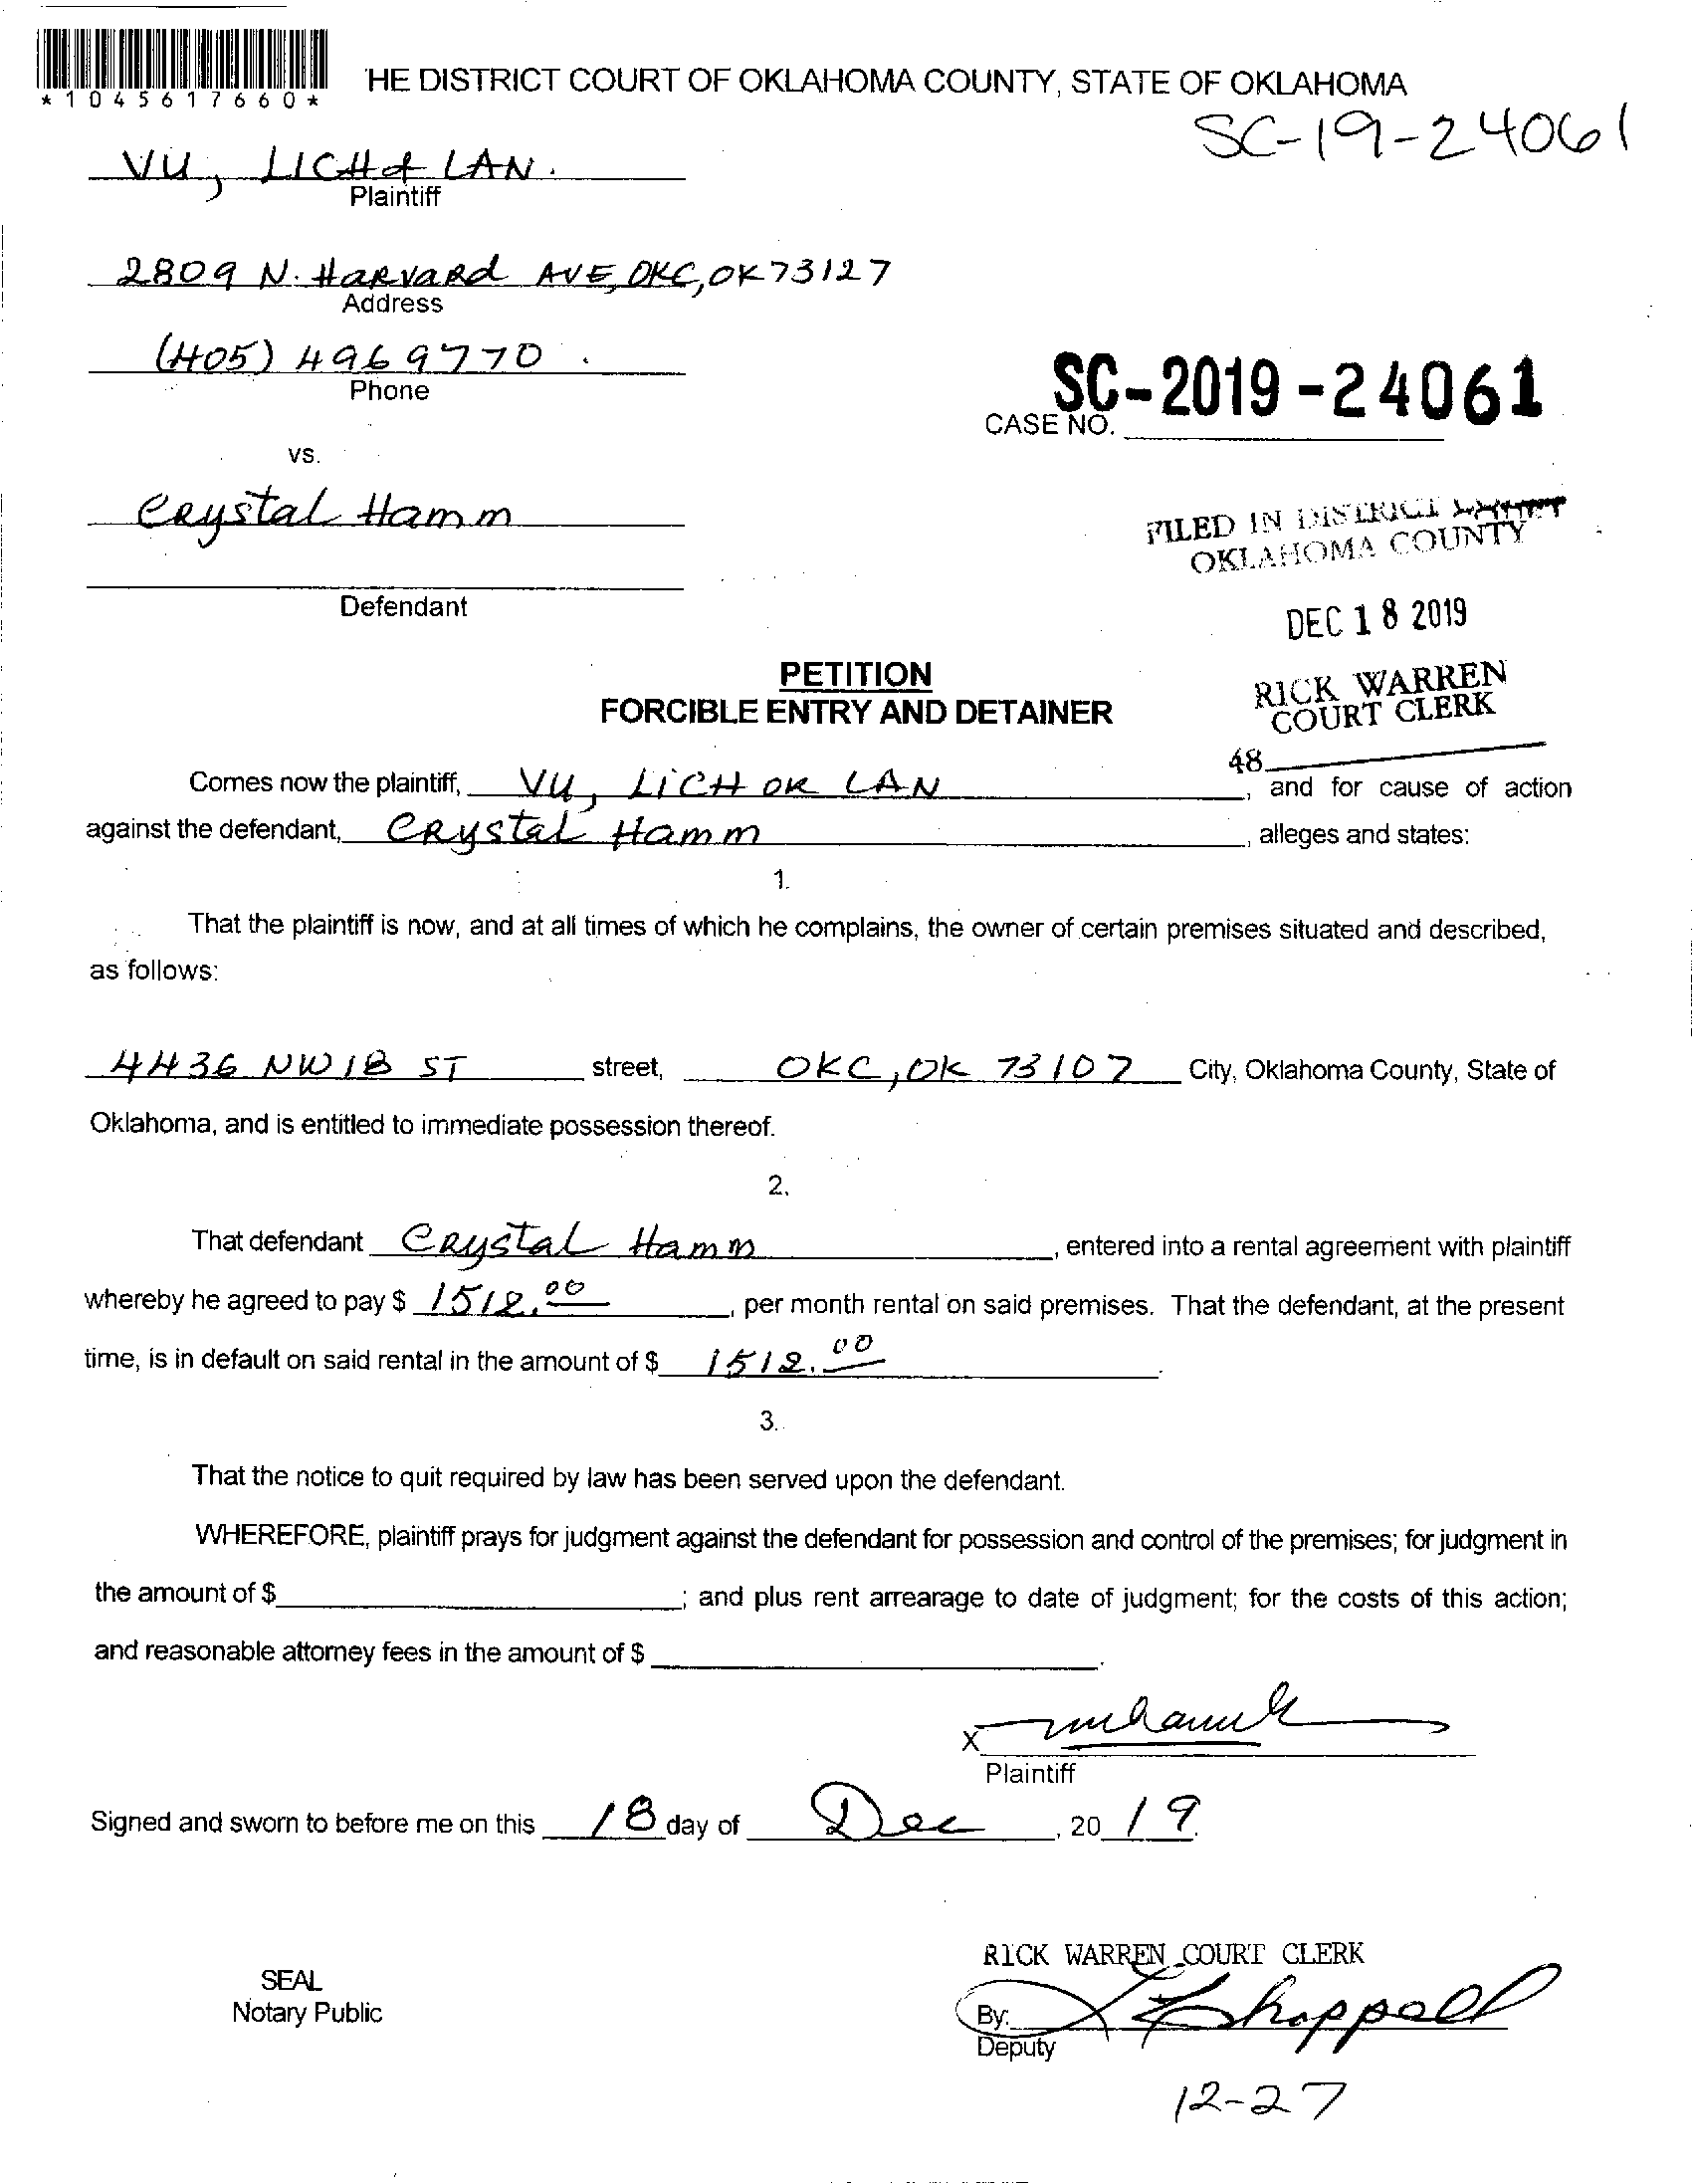 *1045617660*
HE DISTRICT COURT OF OKLAHOMA COUNTY, STATE OF OKLAHOMA
SC-19-24061
VU, LICH & LAN.
Plaintiff
2809 N. HARVARD AVE, OKC, OK 73127
Address
(405) 496 9770.
Phone
SC-2019-24061
CASE NO.
vs.
Crystal Hamm
Defendant
FILED IN DISTRICT COURT
OKLAHOMA COUNTY
DEC 18 2019
RICK WARREN
COURT CLERK
48
PETITION
FORCIBLE ENTRY AND DETAINER
Comes now the plaintiff, VU, LICH OR LAN, and for cause of action
against the defendant, CRystal Hamm, alleges and states:
1.
That the plaintiff is now, and at all times of which he complains, the owner of certain premises situated and described,
as follows:
4436 NW 18 ST street, OKC, OK 73107 City, Oklahoma County, State of
Oklahoma, and is entitled to immediate possession thereof.
2.
That defendant CRystal Hamm, entered into a rental agreement with plaintiff
whereby he agreed to pay $ 1512.00, per month rental on said premises. That the defendant, at the present
time, is in default on said rental in the amount of $ 1512.00.
3.
That the notice to quit required by law has been served upon the defendant.
WHEREFORE, plaintiff prays for judgment against the defendant for possession and control of the premises; for judgment in
the amount of $ ; and plus rent arrearage to date of judgment; for the costs of this action;
and reasonable attorney fees in the amount of $ .
X
Plaintiff
Signed and sworn to before me on this 18 day of Dec, 20 19.
RICK WARREN COURT CLERK
SEAL
Notary Public
By: Chappell
Deputy
12-27